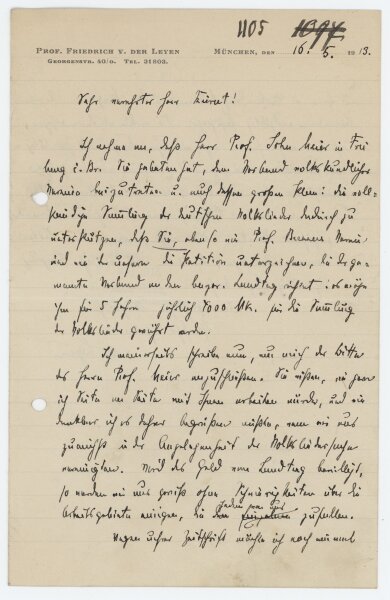 1105 1094
PROF. FRIEDRICH V. DER LEYEN MÜNCHEN, DEN 16. 5. 1913.
GEORGENSTR. 40/0. TEL. 31803.
Sehr verehrter Herr
Ich nehme an, daß Herr Prof. John Meier in Frei
burg i. Br. Sie gebeten hat, dem Verband volkskundlicher
Vereine beizutreten u. auch dessen großen Plan: die voll-
ständige Sammlung der deutschen Volkslieder dadurch zu
unterstützen, daß Sie, ebenso wie Prof.
und wie der unsere die Petition unterzeichnen, die der ge-
nannte Verband an den bayer. Landtag richtet:
ihm für 5 Jahre jährlich 1000 Mk. für die Sammlung
der Volkslieder gewährt werden.
Ich meinerseits schreibe nun, um mich der Bitte
des Herrn Prof. Meier anzuschließen. Sie wissen, wie gern
ich Seite an Seite mit Ihnen arbeiten würde, und wie
dankbar ich es daher begrüßen müßte, wenn wir uns
zunächst in der Angelegenheit der Volksliedersache
vereinigten. Wird das Geld vom Landtag bewilligt,
so werden wir uns gewiß ohne Schwierigkeiten über die
Arbeitsgebiete einigen, die jedem von uns zufallen.
Wegen unsrer Zeitschrift möchte ich noch einmal